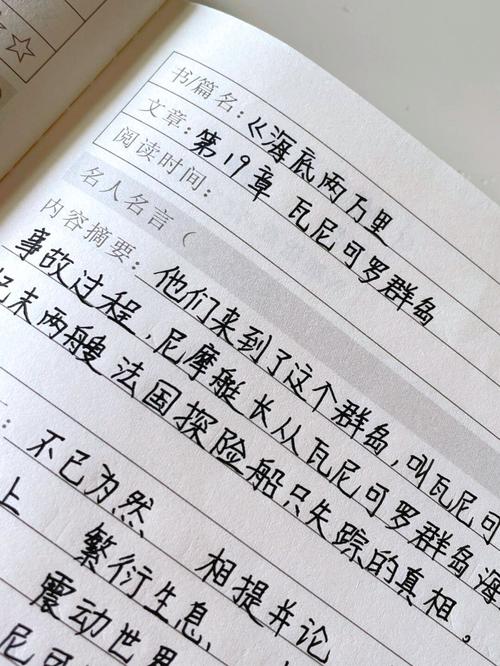 书/篇名:《海底两万里
文章:第19章 瓦尼可罗群岛
阅读时间:
名人名言(
内容摘要:他们来到了这个群岛,叫瓦尼可
事故过程,尼摩艇长从瓦尼可罗群岛海
末两艘法国探险船只失踪的真相。
:不已为然 相提并论
上 繁衍生息、
震动世界
尼可